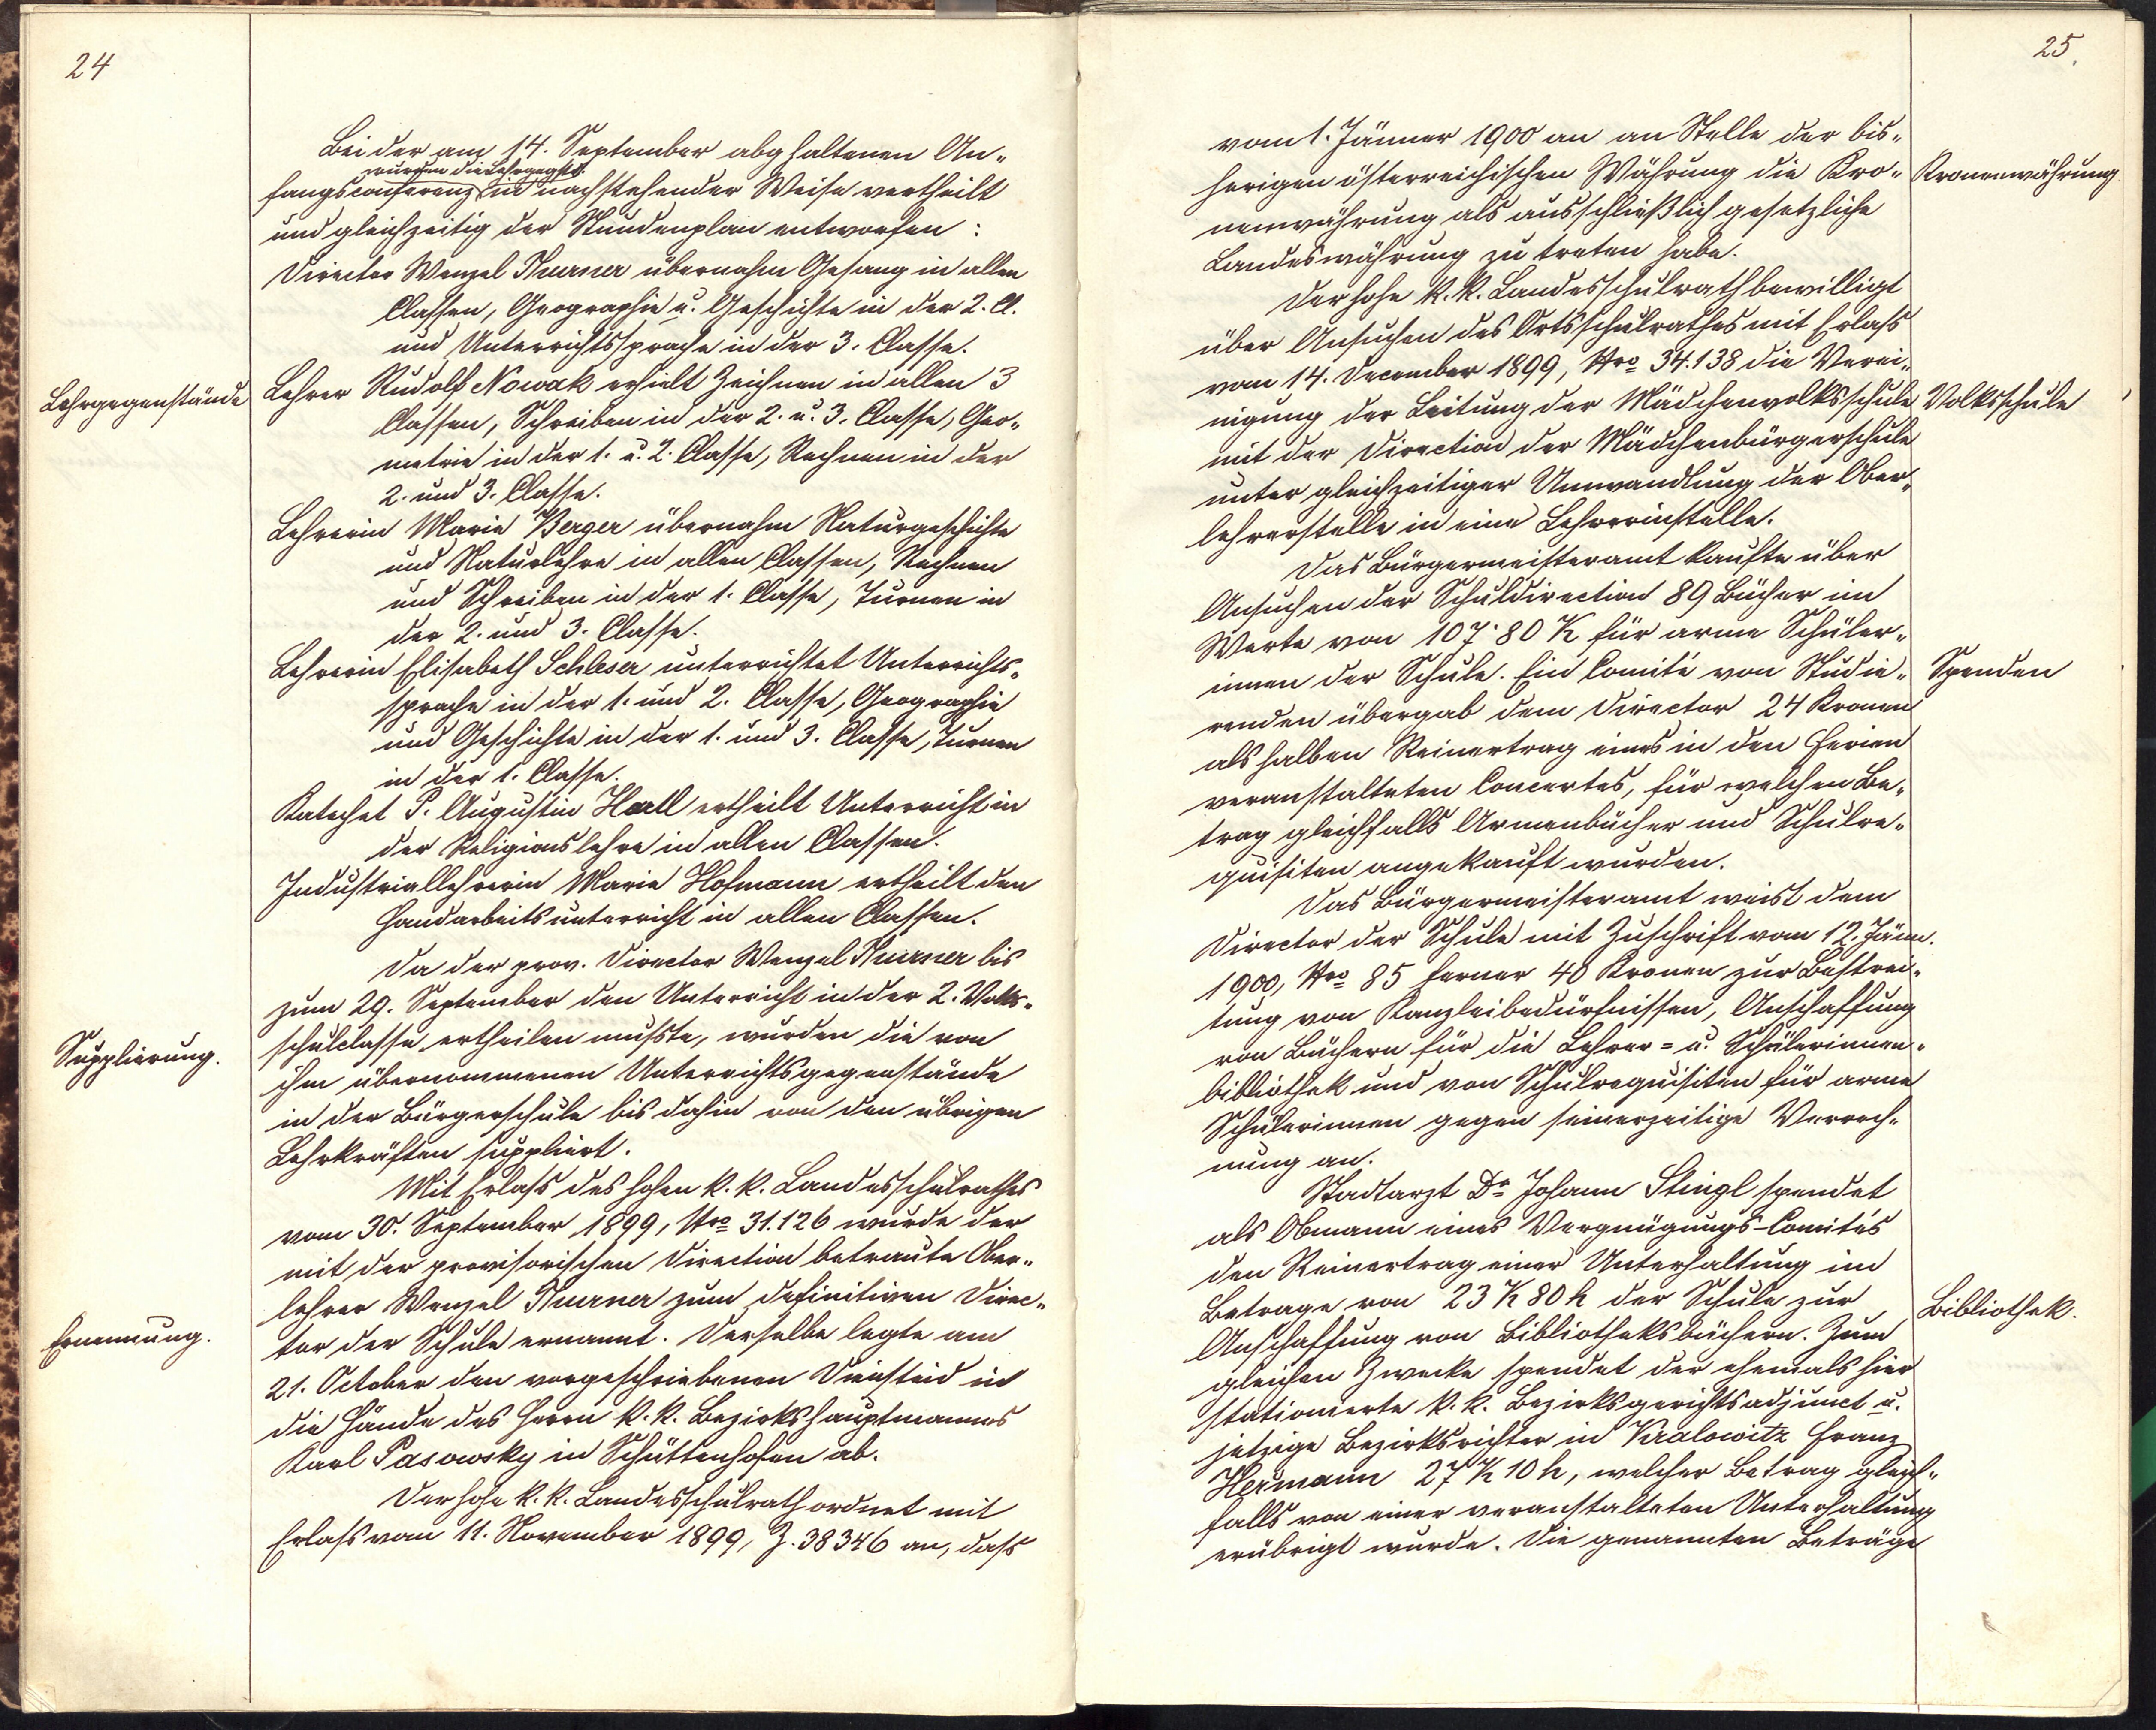 24
Bei der am 14. September abghaltenen An-
wurden die Lehrggstd.
fangsconferenz in nachstehender Weise vertheilt
und gleichzeitig der Stundenplan entworfen:
Director Wenzel Thurner übernahm Gesang in allen
Classen, Geographie u. Geschichte in der 2. Cl.
und Unterrichtssprache in der 3. Classe.
Lehrgegenstände
Lehrer Rudolf Nowak erhielt Zeichnen in allen 3
Classen, Schreiben in der 2. u. 3. Classe, Geo-
metrie in der 1. u. 2. Classe, Rechnen in der
2. und 3. Classe.
Lehrerin Marie Berger übernahm Naturgeschichte
und Naturlehre in allen Classen, Rechnen
und Schreiben in der 1. Classe, Turnen in
der 2. und 3. Classe.
Lehrerin Elisabeth Schleser unterrichtet Unterrichts-
sprache in der 1. und 2. Classe, Geographie
und Geschichte in der 1. und 3. Classe, Turnen
in der 1. Classe.
Katechet P. Augustin Hartl ertheilt Unterricht in
der Religionslehre in allen Classen.
Industriallehrerin Marie Hofmann ertheilt den
Handarbeitsunterricht in allen Classen.
Da der prov. Director Wenzel Thurner bis
zum 29. September den Unterricht in der 2. Volks-
schulclasse ertheilen musste, wurden die von
Supplierung.
ihm übernommenen Unterrichtsgegenstände
in der Bürgerschule bis dahin von den übrigen
Lehrkräften suppliert.
Mit Erlass des hohen k. k. Landesschulrathes
vom 30. September 1899, Nro 31.126 wurde der
mit der provisorischen Direction betraute Ober-
lehrer Wenzel Thurner zum definitiven Direc-
Ernennung.
tor der Schule ernannt. Derselbe legte am
21. October den vorgeschriebenen Diensteid in
die Hände des Herrn k. k. Bezirkshauptmannes
Karl Pasowsky in Schüttenhofen ab.
Der hohe k. k. Landesschulrath ordnet mit
Erlass vom 11. November 1899, Z. 38346 an, dass
25.
vom 1. Jänner 1900 an an Stelle der bis-
herigen österreichischen Währung die Kro-
Kronenwährung
nenwährung als ausschließlich gesetzliche
Landeswährung zu treten habe.
Der hohe k. k. Landesschulrath bewilligt
über Ansuchen des Ortsschulrathes mit Erlass
vom 14. December 1899, Nro 34.138 die Verei-
nigung der Leitung der Mädchenvolksschule
Volksschule
mit der Direction der Mädchenbürgerschule
unter gleichzeitiger Umwandlung der Ober-
lehrerstelle in eine Lehrerinstelle.
Das Bürgermeisteramt kaufte über
Ansuchen der Schuldirection 89 Bücher im
Werte von 107·80 K für arme Schüler-
innen der Schule. Ein Comité von Studie-
Spenden
renden übergab dem Director 24 Kronen
als halben Reinertrag eines in den Ferien
veranstalteten Concertes, für welchen Be-
trag gleichfalls Armenbücher und Schulre-
quisiten angekauft wurden.
Das Bürgermeisteramt weist dem
Director der Schule mit Zuschrift vom 12. Jänn.
1900, Nro 85 ferner 40 Kronen zur Bestrei-
tung von Kanzleibedürfnissen, Anschaffung
von Büchern für die Lehrer- u. Schülerinnen-
bibliothek und von Schulrequisiten für arme
Schülerinnen gegen seinerzeitige Verrech-
nung an.
Stadtarzt Dr Johann Stingl spendet
als Obmann eines Vergnügungs-Comités
den Reinertrag einer Unterhaltung im
Betrage von 23 K 80 h der Schule zur
Bibliothek.
Anschaffung von Bibliotheksbüchern. Zum
gleichen Zwecke spendet der ehemals hier
stationierte k. k. Bezirksgerichtsadjunct u.
jetzige Bezirksrichter in Kralowitz Franz
Hermann 27 K 10 h, welcher Betrag gleich-
falls von einer veranstalteten Unterhaltung
erübrigt wurde. Die genannten Beträge